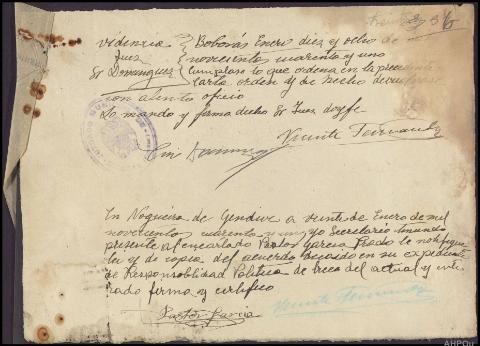 videncia
Juez
Sr Dominguez
Boborás Enero diez y ocho de
novecientos cuarenta y uno
Cumplase lo que ordena en la precedente
carta orden y de hecho devuelvase
con atento oficio
Lo mando y firma dicho Sr Juez doy fe
Vicente Fernandez
En Nogueira de Gendive a veinte de Enero de mil
novecientos cuarenta y uno yo Secretario teniendo
presente al encartado Pastor Garcia Prado le notifique
lei y di copia del acuerdo decaido en su expediente
de Responsabilidad Politica de trece del actual y ente
rado firma y certifico
Pastor Garcia
Vicente Fernandez
AHPOu